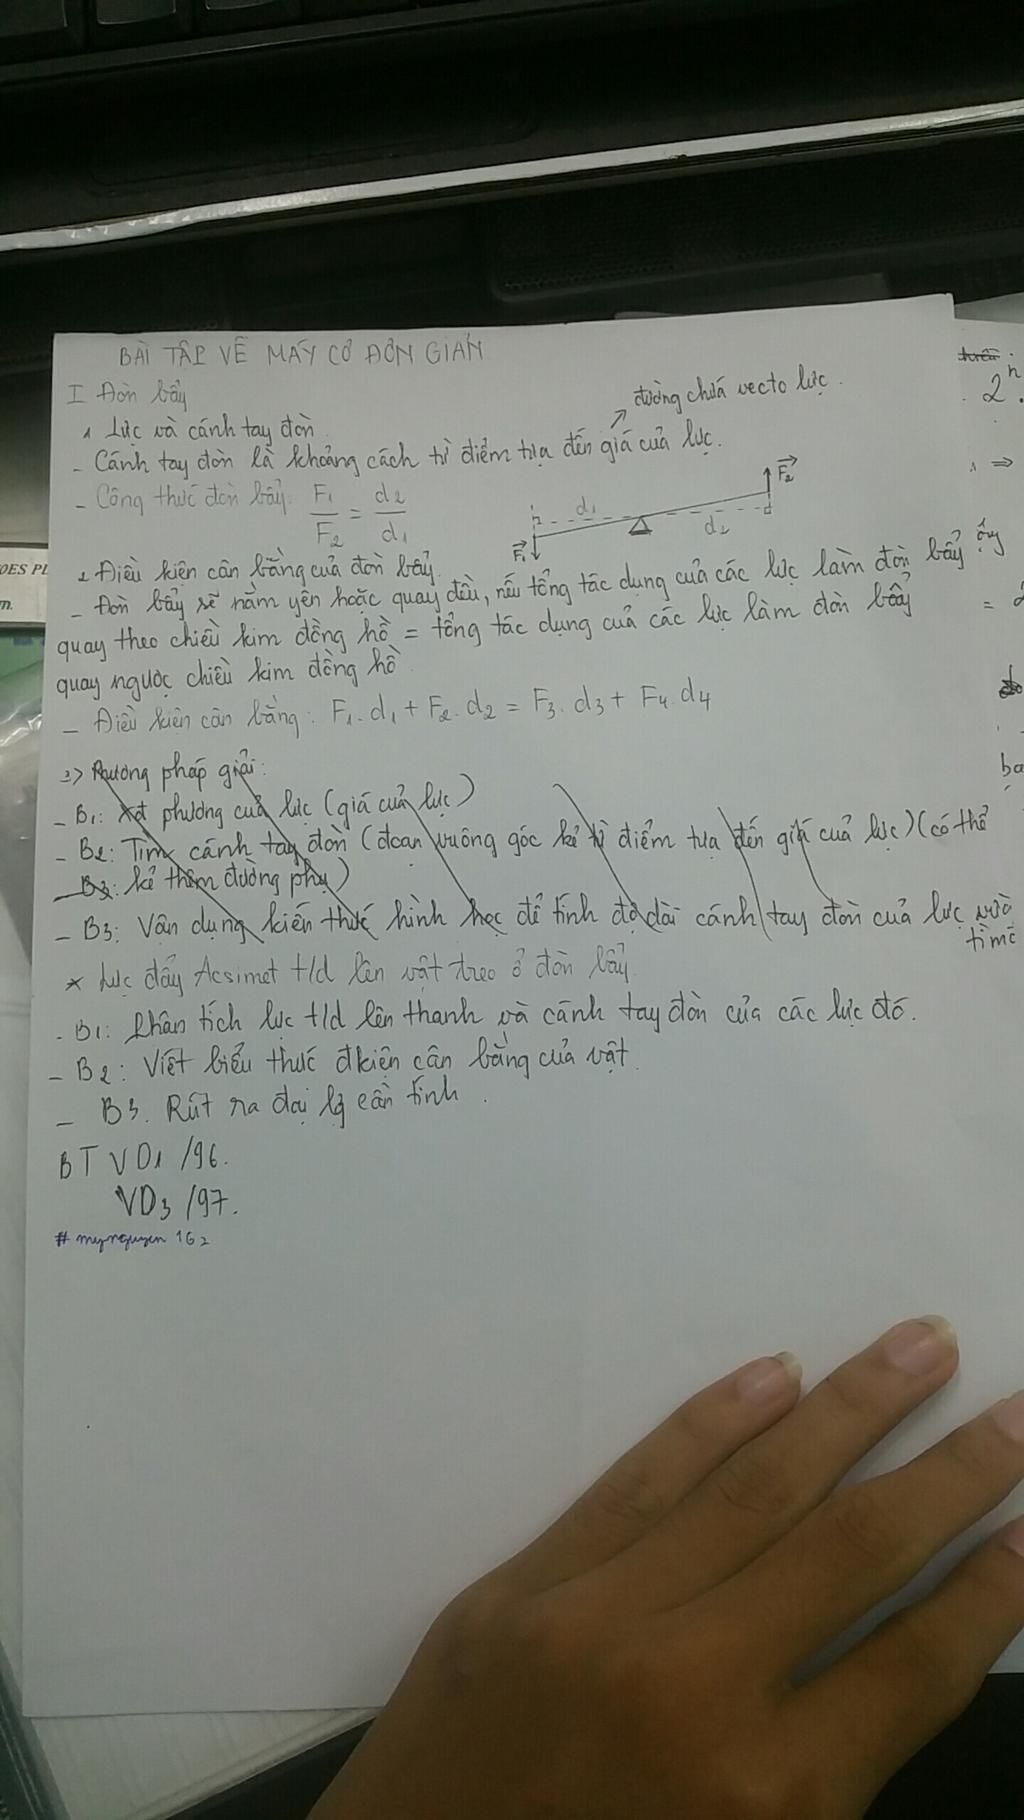 BÀI TẬP VỀ MÁY CƠ ĐƠN GIẢN
I Đòn bẩy
đường chứa vecto lực.
1 Lực và cánh tay đòn
- Cánh tay đòn là khoảng cách từ điểm tựa đến giá của lực.
- Công thức đòn bẩy: F1/F2 = d2/d1
d1
d2
F1
F2
2 Điều kiện cân bằng của đòn bẩy.
- Đòn bẩy sẽ nằm yên hoặc quay đều, nếu tổng tác dụng của các lực làm đòn bẩy
quay theo chiều kim đồng hồ = tổng tác dụng của các lực làm đòn bẩy
quay ngược chiều kim đồng hồ
- Điều kiện cân bằng: F1.d1 + F2.d2 = F3.d3 + F4.d4
3> Phương pháp giải:
- B1: Xđ phương của lực (giá của lực)
- B2: Tìm cánh tay đòn (đoạn vuông góc kẻ từ điểm tựa đến giá của lực) (có thể
B3: kẻ thêm đường phụ)
- B3: Vận dụng kiến thức hình học để tính độ dài cánh tay đòn của lực
* Lực đẩy Acsimet t/d lên vật treo ở đòn bẩy
- B1: Phân tích lực t/d lên thanh và cánh tay đòn của các lực đó.
- B2: Viết biểu thức đkiện cân bằng của vật.
- B3. Rút ra đại lg cần tính.
BT VD1 /96.
VD3 /97.
# mynguyen 162
2 n
⇒
ba